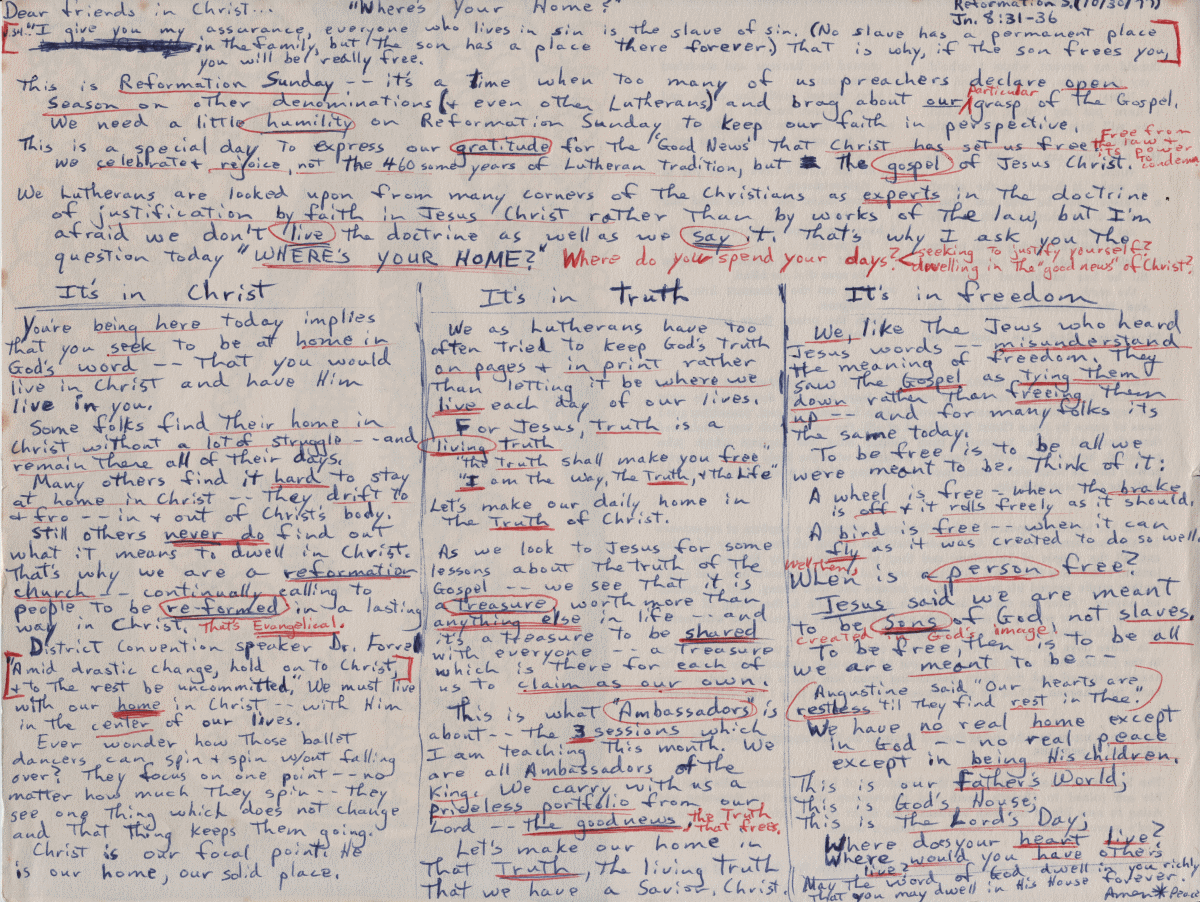 Dear friends in Christ... "Where's Your Home?" Reformation S. (10/30/77)
Jn. 8:31-36
34. "I give you my assurance, everyone who lives in sin is the slave of sin. (No slave has a permanent place
in the family, but the son has a place there forever.) That is why, if the son frees you,
you will be really free.
This is Reformation Sunday -- it's a time when too many of us preachers declare open
season on other denominations (& even other Lutherans) and brag about our particular grasp of the Gospel.
We need a little humility on Reformation Sunday to keep our faith in perspective.
This is a special day to express our gratitude for the "Good News" that Christ has set us free Free from the law & its power to condemn
We celebrate & rejoice, not the 460 some years of Lutheran tradition, but the gospel of Jesus Christ.
We Lutherans are looked upon from many corners of the Christians as experts in the doctrine
of justification by faith in Jesus Christ rather than by works of the law, but I'm
afraid we don't live the doctrine as well as we say it. That's why I ask you the
question today "WHERE'S YOUR HOME?" Where do you spend your days? seeking to justify yourself?
dwelling in the "good news" of Christ?
It's in Christ
You're being here today implies
that you seek to be at home in
God's word -- that you would
live in Christ and have Him
live in you.
Some folks find their home in
Christ without a lot of struggle -- and
remain there all of their days.
Many others find it hard to stay
at home in Christ -- they drift to
& fro -- in & out of Christ's body.
Still others never do find out
what it means to dwell in Christ.
That's why we are a reformation
church -- continually calling to
people to be re-formed in a lasting
way in Christ. That's Evangelical.
District Convention speaker Dr. Forrel
"Amid drastic change, hold on to Christ,
& to the rest be uncommitted." We must live
with our home in Christ -- with Him
in the center of our lives.
Ever wonder how those ballet
dancers can spin & spin w/out falling
over? They focus on one point -- no
matter how much they spin -- they
see one thing which does not change
and that thing keeps them going.
Christ is our focal point. He
is our home, our solid place.
It's in Truth
We as Lutherans have too
often tried to keep God's truth
on pages & in print rather
than letting it be where we
live each day of our lives.
For Jesus, truth is a
living truth
"the truth shall make you free"
"I am the way, the Truth, & the Life"
Let's make our daily home in
the Truth of Christ.
As we look to Jesus for some
lessons about the truth of the
Gospel -- we see that it is
a treasure, worth more than
anything else in life -- and
it's a treasure to be shared
with everyone -- a treasure
which is there for each of
us to claim as our own.
This is what "Ambassadors" is
about -- the 3 sessions which
I am teaching this month. We
are all Ambassadors of the
King. We carry with us a
priceless portfolio from our
Lord -- the good news, the Truth that frees.
Let's make our home in
that Truth, the living truth
that we have a Savior, Christ.
It's in freedom
We, like the Jews who heard
Jesus words -- misunderstand
the meaning of freedom. They
saw the Gospel as tying them
down rather than freeing them
up -- and for many folks its
the same today.
To be free is to be all we
were meant to be. Think of it:
A wheel is free - when the brake
is off & it rolls freely as it should.
A bird is free -- when it can
fly as it was created to do so well.
Well then,
When is a person free?
Jesus said we are meant
to be sons of God, not slaves.
created in God's image
To be free, then is to be all
we are meant to be --
Augustine said "Our hearts are
restless 'til they find rest in Thee."
We have no real home except
in God -- no real peace
except in being His children.
This is our Father's World;
This is God's House;
This is the Lord's Day;
Where does your heart live?
Where would you have others
live?
May the word of God dwell in you richly
that you may dwell in His House forever.
Amen * Peace